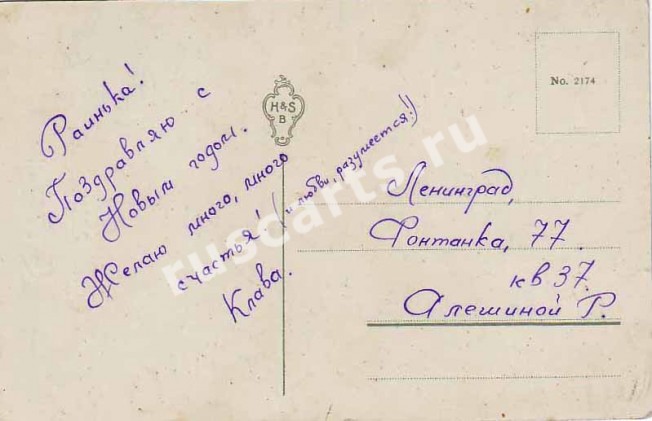 Раинька!
Поздравляю с
Новым годом.
Желаю много, много
счастья! (и любви, разумеется!)
Клава.
H&S
B
No. 2174
Ленинград,
Фонтанка, 77.
кв 37.
Алешиной Р.
ruscarts.ru